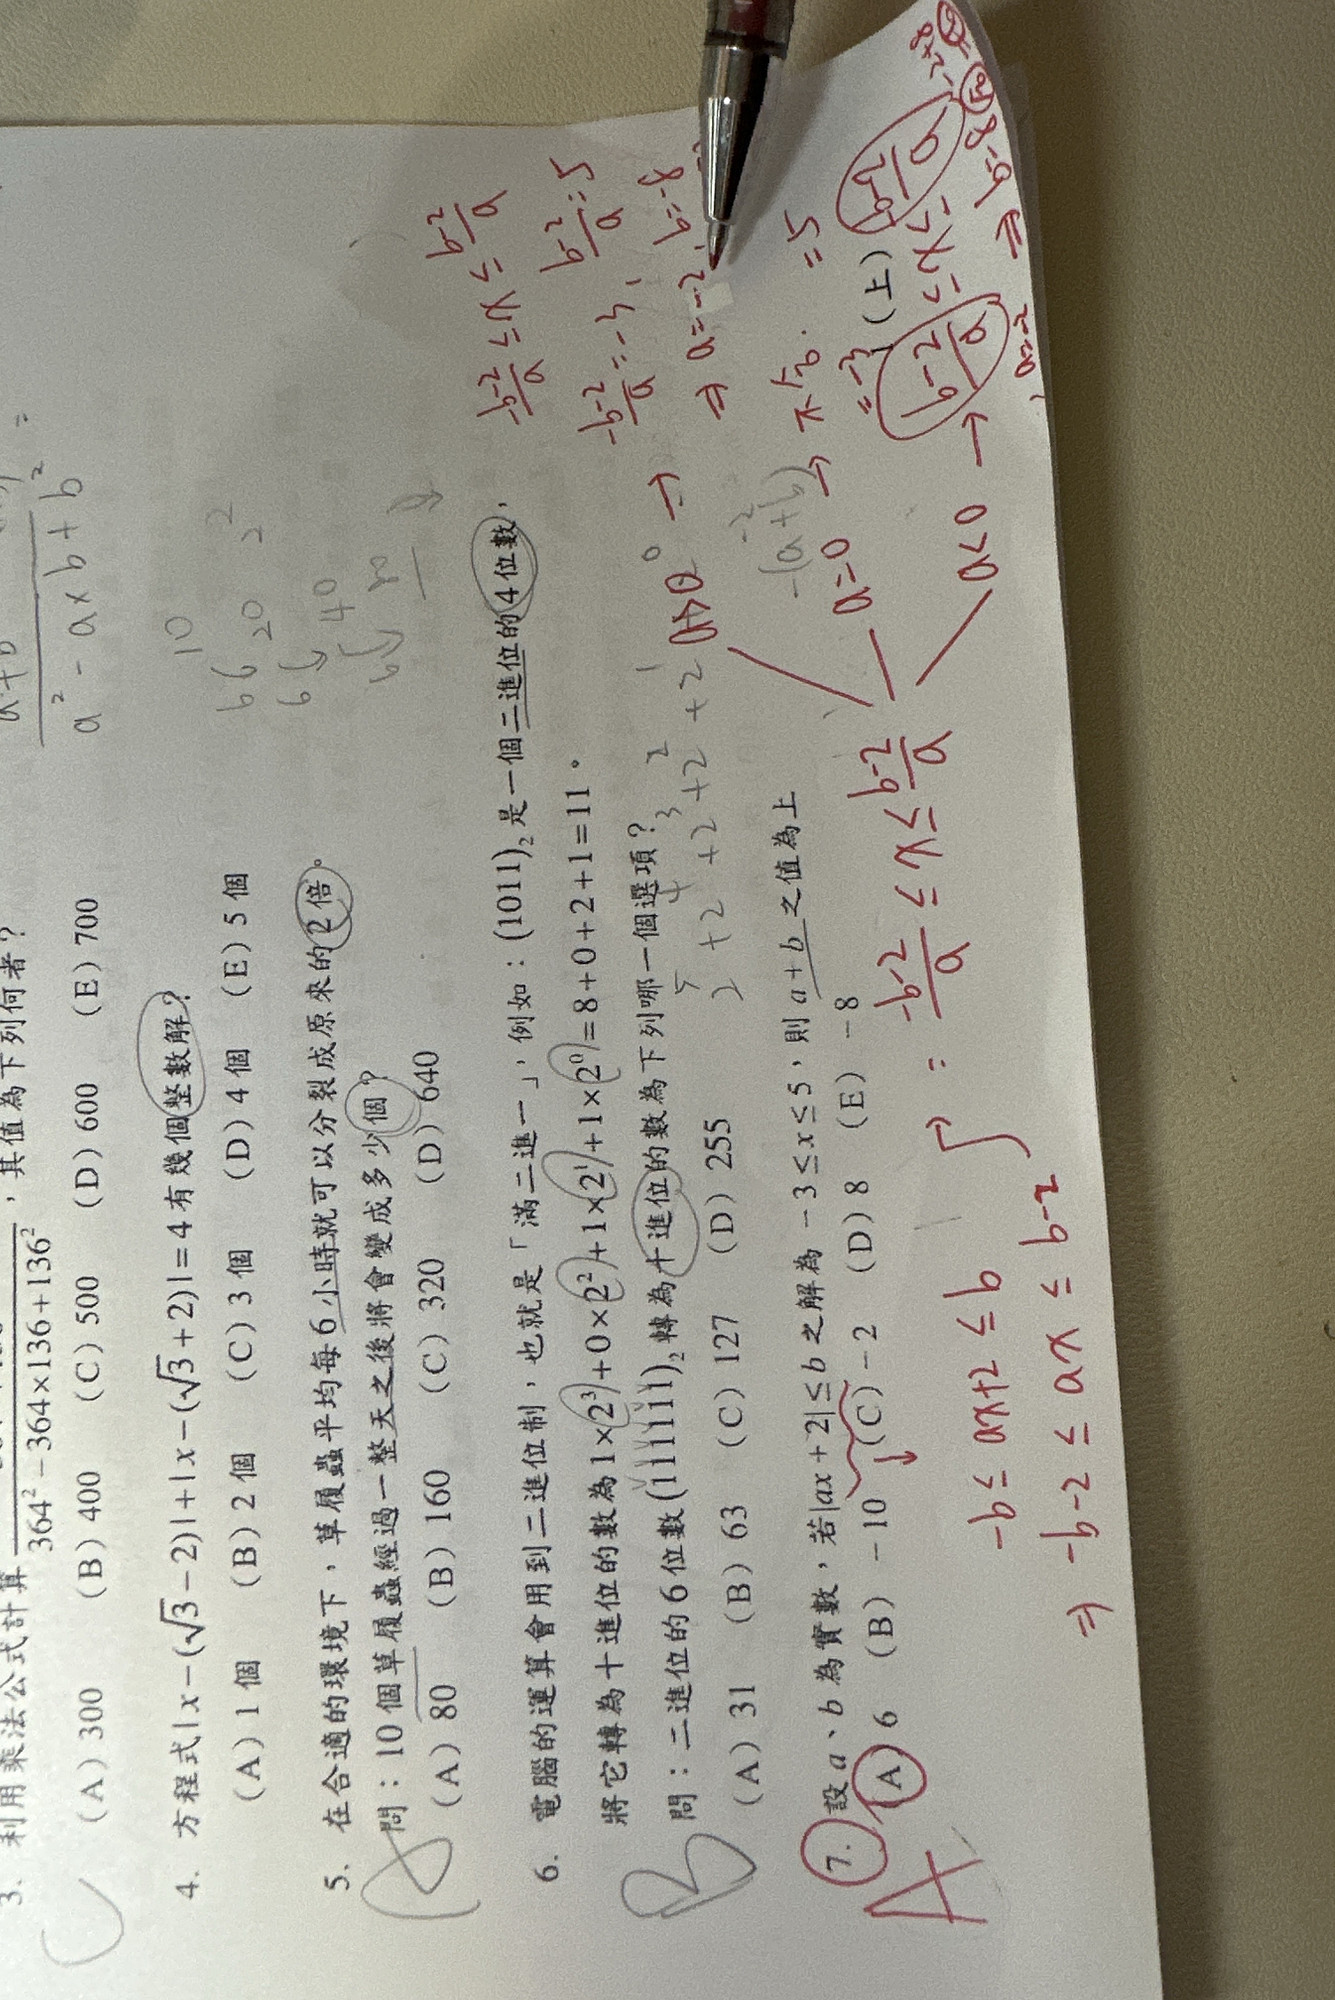 a+b
a² - a×b + b² =
3. 利用乘法公式計算
364² − 364×136+136²
，其值為下列何者？
(A) 300 (B) 400 (C) 500 (D) 600 (E) 700
4. 方程式|x−(√3−2)|+|x−(√3+2)|=4有幾個整數解？
(A) 1個 (B) 2個 (C) 3個 (D) 4個 (E) 5個
10
6
20 2²
6
40
6
80
5. 在合適的環境下，草履蟲平均每6小時就可以分裂成原來的2倍。
問：10個草履蟲經過一整天之後將會變成多少個？
(A) 80 (B) 160 (C) 320 (D) 640
B
6. 電腦的運算會用到二進位制，也就是「滿二進一」，例如：(1011)₂是一個二進位的4位數，
將它轉為十進位的數為1×2³+0×2²+1×2¹+1×2⁰=8+0+2+1=11。
問：二進位的6位數(111111)₂轉為十進位的數為下列哪一個選項？
2⁵+2⁴+2³+2²+2¹ 2⁰
(A) 31 (B) 63 (C) 127 (D) 255
A
7. 設a、b為實數，若|ax+2|≤b之解為−3≤x≤5，則a+b之值為上
−(a+b)
−2
(A) 6 (B) −10 (C) −2 (D) 8 (E) −8
(上)
-b ≤ ax+2 ≤ b
⇒ -b-2 ≤ ax ≤ b-2
= -b-2/a ≤ x ≤ b-2/a
a>0 → -b-2/a ≤ x ≤ b-2/a
-b-2/a = -3, b-2/a = 5
⇒ a=-2, b=-8
a=0 → 不合.
a<0 → b-2/a ≤ x ≤ -b-2/a
=-3 =5
⇒ b=8
a=-2
-2+8